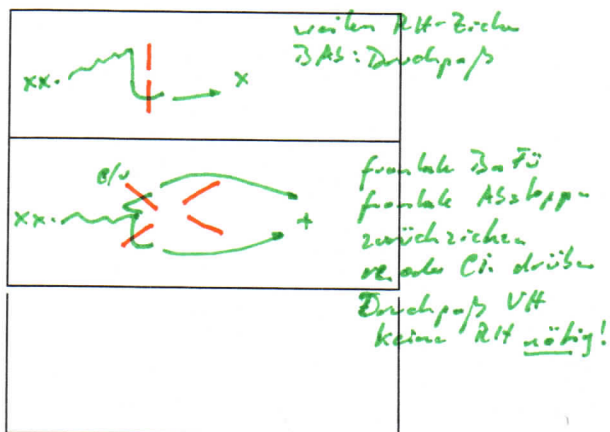 weiten RH-Ziehen
BAS: Druckpaß
xx. x
frontale Ba Fü
frontale Abstoppen
zurückziehen
re. oder li. drüber
Druckpaß VH
keine RH nötig!
xx. +